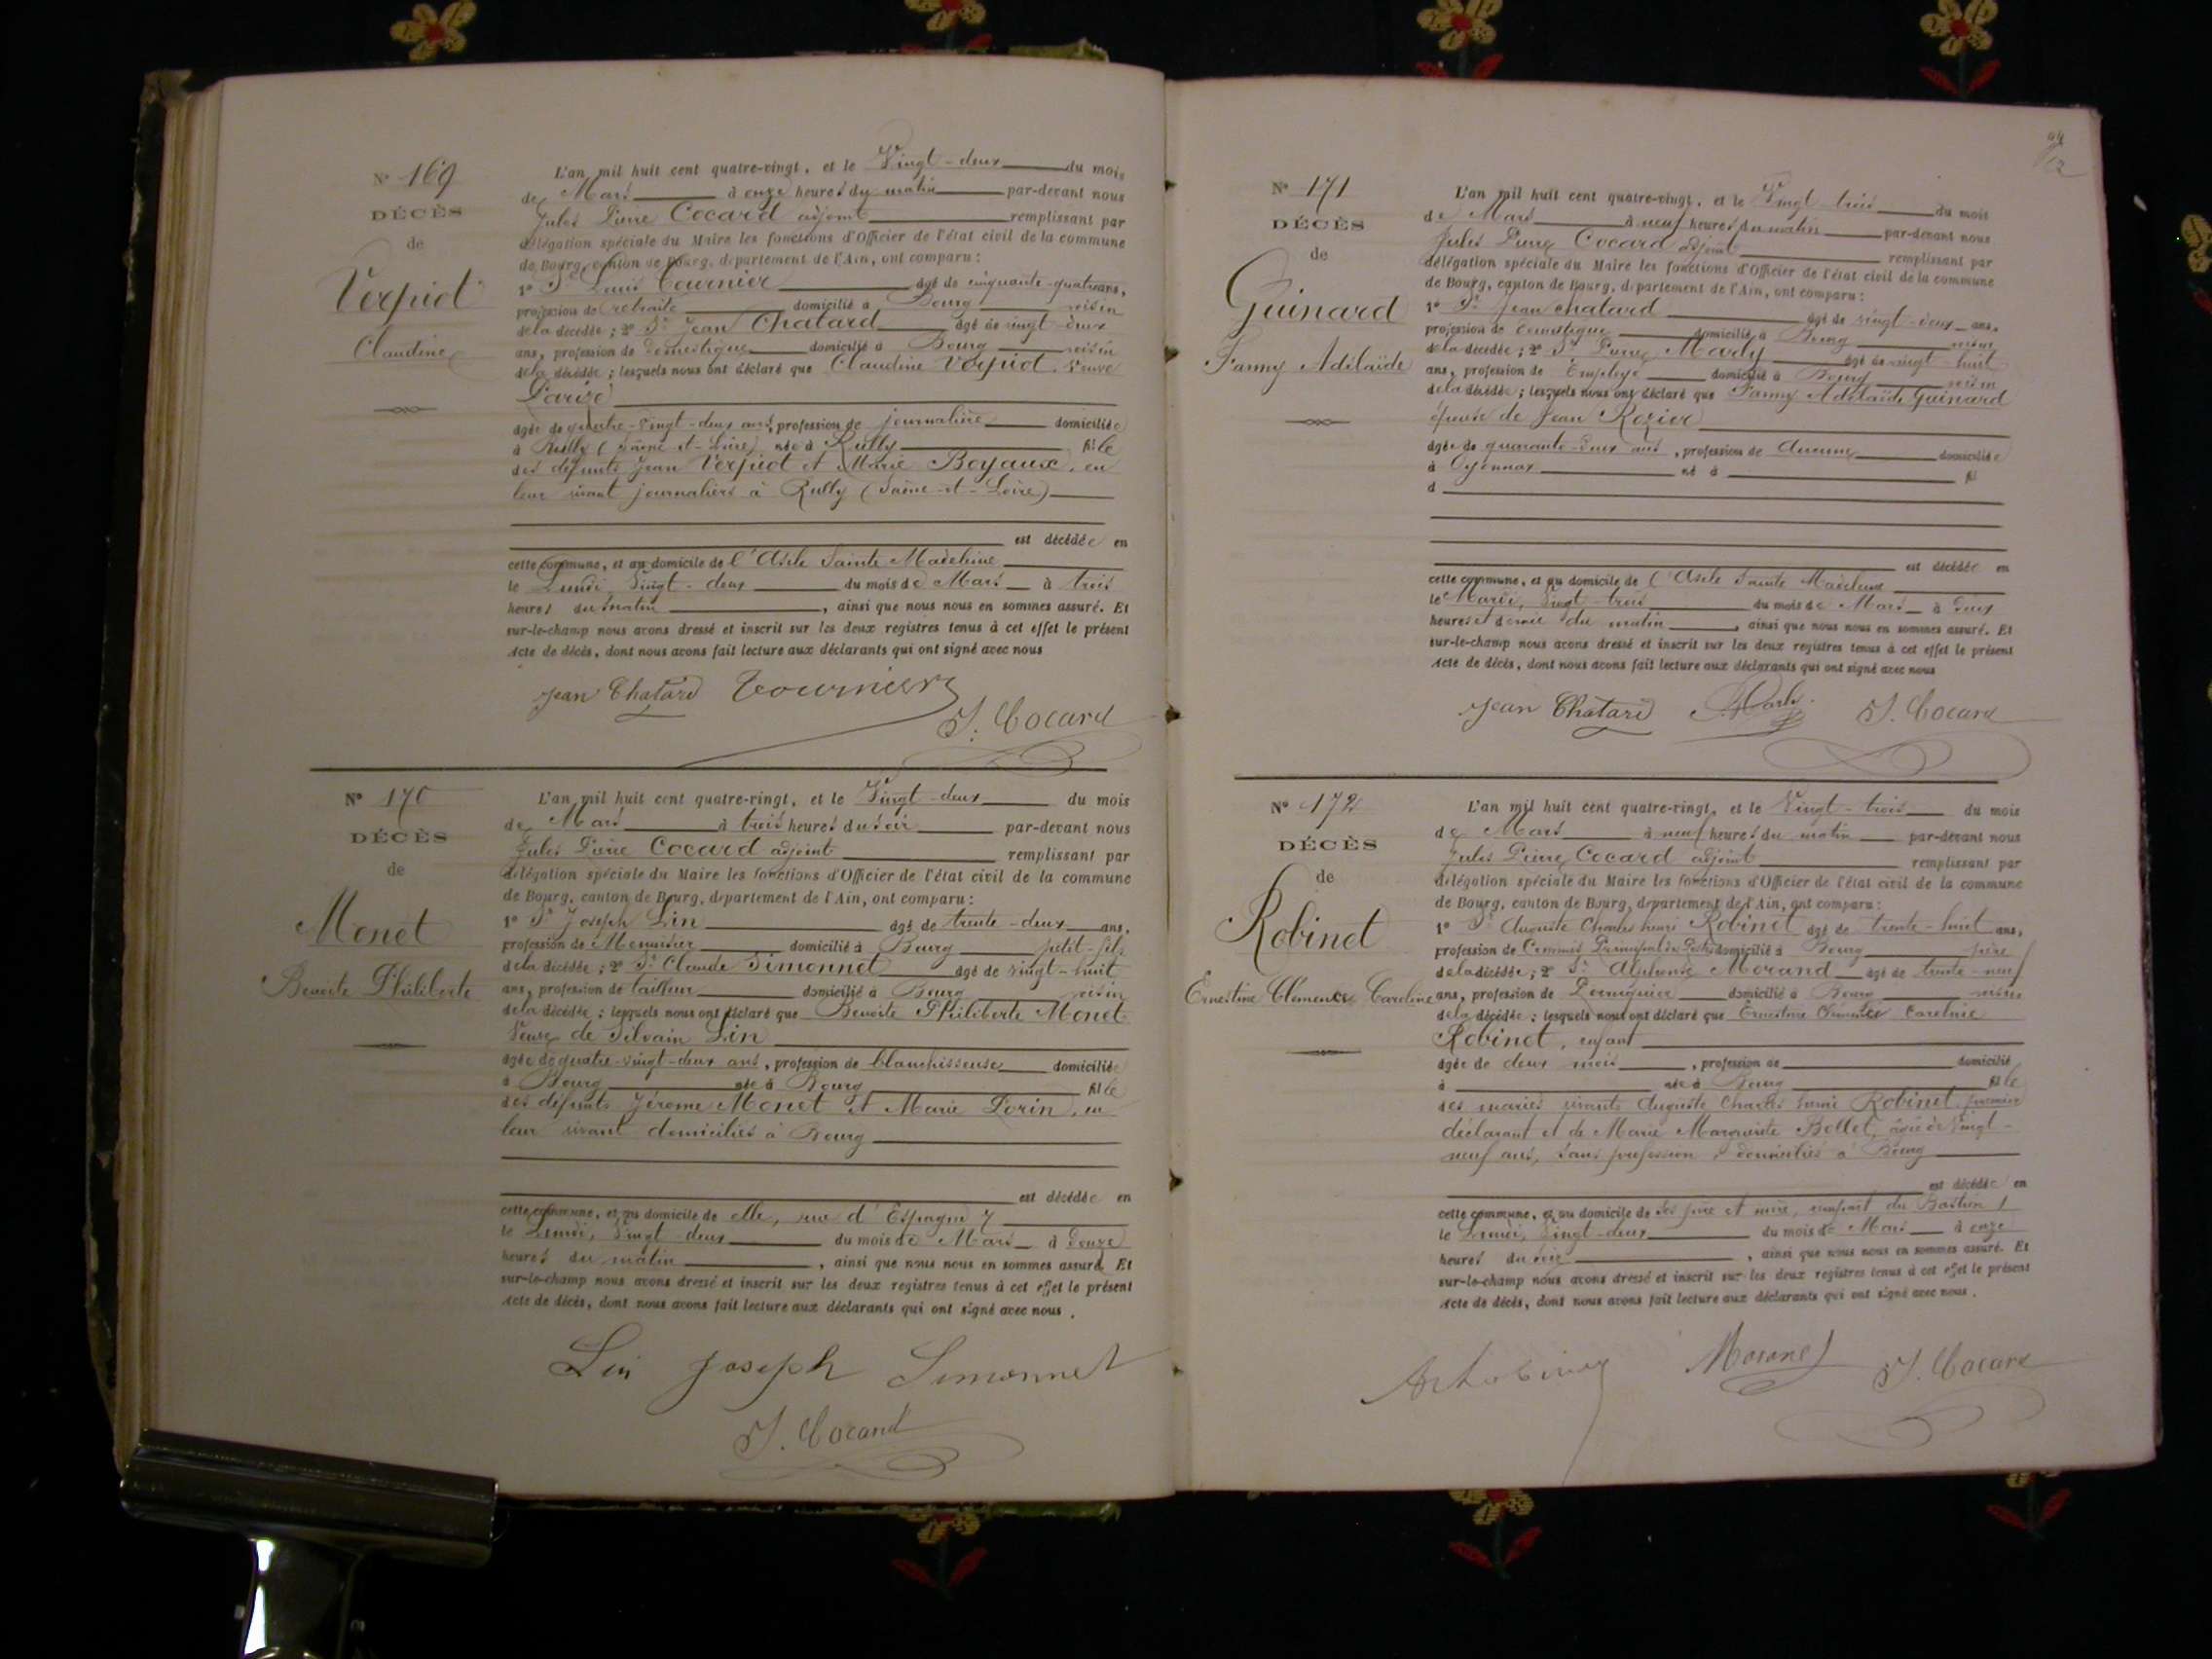 Nº 169
DÉCÈS
de
Verpiot
Claudine
L'an mil huit cent quatre-vingt, et le Vingt-deux du mois
de Mars à onze heures du matin par-devant nous
Jules Pierre Cocard adjoint remplissant par
délégation spéciale du Maire les fonctions d'Officier de l'état civil de la commune
de Bourg, canton de Bourg, département de l'Ain, ont comparu :
1º Sr Louis Tournier âgé de cinquante-quatre ans,
profession de retraité domicilié à Bourg voisin
de la décédée ; 2º Sr Jean Chatard âgé de vingt-deux
ans, profession de domestique domicilié à Bourg voisin
de la décédée ; lesquels nous ont déclaré que Claudine Verpiot, Veuve
agée de quatre-vingt-deux ans, profession de journalière domiciliée
à Rully (Saône-et-Loire) née à Rully fille
des défunts Jean Verpiot et Marie Boyaux, en
leur vivant journaliers à Rully (Saône-et-Loire)
est décédée en
cette commune, et au domicile de l'Asile Sainte Madeleine
le Lundi Vingt-deux du mois de Mars à trois
heures du matin, ainsi que nous nous en sommes assuré. Et
sur-le-champ nous avons dressé et inscrit sur les deux registres tenus à cet effet le présent
Acte de décès, dont nous avons fait lecture aux déclarants qui ont signé avec nous
Jean Chatard Tournier
J. Cocard
Nº 170
DÉCÈS
de
Monet
Benoite Philiberte
L'an mil huit cent quatre-vingt, et le Vingt-deux du mois
de Mars à trois heures du soir par-devant nous
Jules Pierre Cocard adjoint remplissant par
délégation spéciale du Maire les fonctions d'Officier de l'état civil de la commune
de Bourg, canton de Bourg, département de l'Ain, ont comparu :
1º Sr Joseph Lin âgé de trente-deux ans,
profession de Menuisier domicilié à Bourg petit-fils
de la décédée ; 2º Sr Claude Simonnet âgé de vingt-huit
ans, profession de tailleur domicilié à Bourg voisin
de la décédée ; lesquels nous ont déclaré que Benoite Philiberte Monet
Veuve de Silvain Lin
agée de quatre-vingt-deux ans, profession de blanchisseuse domiciliée
à Bourg née à Bourg fille
des défunts Jérome Monet et Marie Perin, en
leur vivant domiciliés à Bourg
est décédée en
cette commune, et au domicile de elle, rue d'Espagne 7
le Lundi, Vingt-deux du mois de Mars à douze
heures du matin, ainsi que nous nous en sommes assuré. Et
sur-le-champ nous avons dressé et inscrit sur les deux registres tenus à cet effet le présent
Acte de décès, dont nous avons fait lecture aux déclarants qui ont signé avec nous.
Lin Joseph Simonnet
J. Cocard
Nº 171
DÉCÈS
de
Guinard
Fanny Adélaïde
L'an mil huit cent quatre-vingt, et le Vingt-trois du mois
de Mars à neuf heures du matin par-devant nous
Jules Pierre Cocard adjoint remplissant par
délégation spéciale du Maire les fonctions d'Officier de l'état civil de la commune
de Bourg, canton de Bourg, département de l'Ain, ont comparu :
1º Sr Jean Chatard âgé de vingt-deux ans,
profession de domestique domicilié à Bourg voisin
de la décédée ; 2º Sr Pierre Marly âgé de vingt-huit
ans, profession de Employé domicilié à Bourg voisin
de la décédée ; lesquels nous ont déclaré que Fanny Adélaïde Guinard
épouse de Jean Rozier
agée de quarante-deux ans, profession de Aucune domiciliée
à Oyonnax né à fil
d
est décédée en
cette commune, et au domicile de l'Asile Sainte Madeleine
le Mardi, Vingt-trois du mois de Mars à deux
heures et demie du matin, ainsi que nous nous en sommes assuré. Et
sur-le-champ nous avons dressé et inscrit sur les deux registres tenus à cet effet le présent
Acte de décès, dont nous avons fait lecture aux déclarants qui ont signé avec nous
Jean Chatard Marly J. Cocard
Nº 172
DÉCÈS
de
Robinet
Ernestine Clémence Caroline
L'an mil huit cent quatre-vingt, et le Vingt-trois du mois
de Mars à neuf heures du matin par-devant nous
Jules Pierre Cocard adjoint remplissant par
délégation spéciale du Maire les fonctions d'Officier de l'état civil de la commune
de Bourg, canton de Bourg, département de l'Ain, ont comparu :
1º Sr Auguste Charles Henri Robinet âgé de trente-huit ans,
profession de Commis Principal des Postes domicilié à Bourg père
de la décédée ; 2º Sr Alphonse Morand âgé de trente-neuf
ans, profession de domicilié à Bourg voisin
de la décédée ; lesquels nous ont déclaré que Ernestine Clémence Caroline
Robinet, enfant
agée de deux mois, profession de domicilié
à née à Bourg fille
des mariés vivants Auguste Charles Henri Robinet, premier
déclarant et de Marie Marguerite Bollet, âgée de Vingt-
neuf ans, sans profession, domiciliés à Bourg
est décédée en
cette commune, et au domicile de ses père et mère, rempart du Bastion 1
le Lundi, Vingt-deux du mois de Mars à onze
heures du soir, ainsi que nous nous en sommes assuré. Et
sur-le-champ nous avons dressé et inscrit sur les deux registres tenus à cet effet le présent
Acte de décès, dont nous avons fait lecture aux déclarants qui ont signé avec nous.
Morand J. Cocard